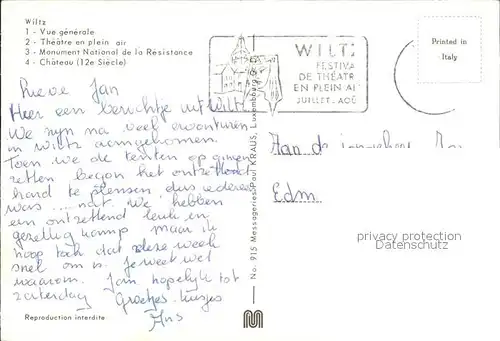 Wiltz
1 - Vue générale
2 - Théâtre en plein air
3 - Monument National de la Résistance
4 - Château (12e Siècle)
Lieve Jan
Hier een berichtje uit Wiltz
We zijn na veel avonturen
in wiltz aangekomen.
Toen we de tenten op gingen
zetten began het ontzettend
hard te plensen, dus iedereen
was ... nat. We hebben
een ontzettend leuk en
gezellig kamp maar ik
hoop toch dat deze week
snel om is. Je weet wel
waarom. Jan hopelijk tot
zaterdag Groetjes kusjes
Ans
Reproduction interdite
No. 915 Messageries Paul KRAUS, Luxembourg
WILTZ
FESTIVA
DE THÉATR
EN PLEIN AI
JUILLET. AOÛ
Printed in
Italy
Aan de
Edm
privacy protection
Datenschutz
M